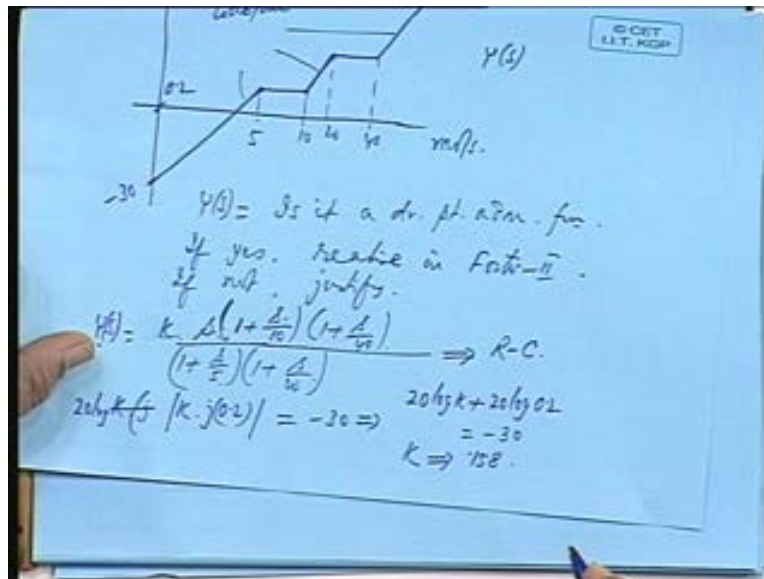 © CET
I.I.T. KGP
Y(s)
0.2
5 10 20 40 rad/s.
-30
Y(s) = Is it a dr. pt. adm. fun.
If yes. realise in Foster-II.
If not, justify.
Y(s) = K s(1 + s/10)(1 + s/40)
(1 + s/5)(1 + s/20) ⇒ R-C.
20 log |K. j(0.2)| = -30 ⇒ 20 log K + 20 log 0.2
= -30
K ⇒ .158.